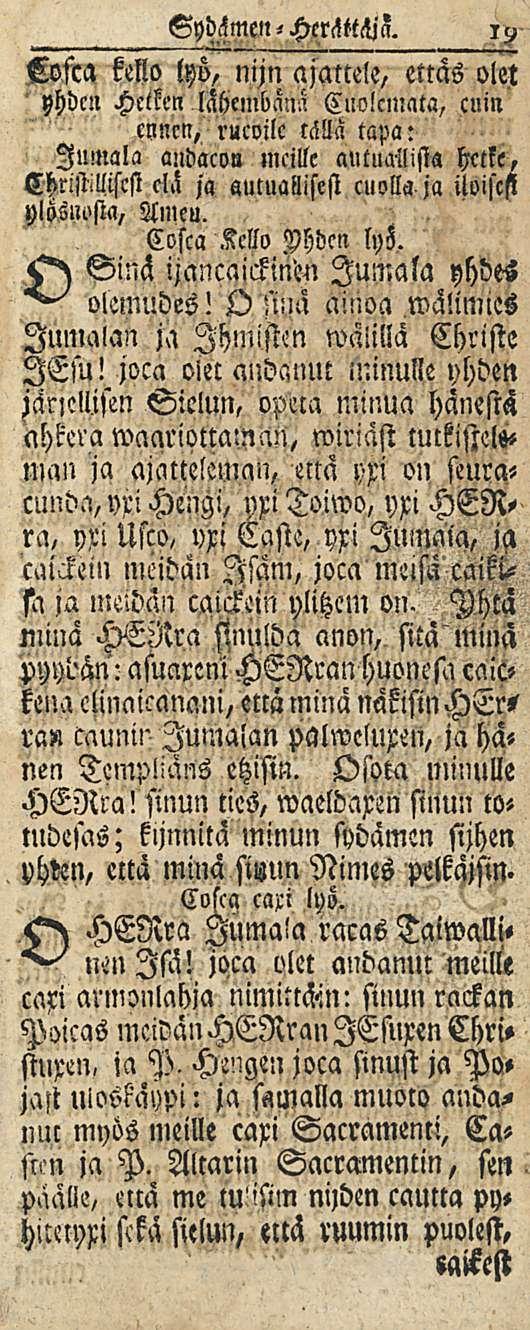 Sydämen-Herättäjä. 19
Cosca kello lyö, nijn ajattele, ettäs olet
yhden Hetken lähembänä Cuolemata, cuin
ennen, rucoile tällä tapa:
Jumala andacon meille autuallista hetke,
Christillisest elä ja autuallisest cuolla ja iloisest
ylösnosta, Amen.
Cosca Kello Yhden lyö.
O Sinä ijancaickinen Jumala yhdes
olemudes! O sinä ainoa wälimies
Jumalan ja Ihmisten wälillä Christe
JEsu! joca olet andanut minulle yhden
järjellisen Sielun, opeta minua hänestä
ahkera waariottaman, wiriäst tutkistele-
man ja ajatteleman, että yxi on seura-
cunda, yxi Hengi, yxi Toiwo, yxi HER-
ra, yxi Usco, yxi Caste, yxi Jumala, ja
caickein meidän Isäm, joca meisä caiki-
sa ja meidän caickein ylitzem on. Yhtä
minä HERra sinulda anon, sitä minä
pyydän: asuaxeni HERran huonesa caic-
kena elinaicanani, että minä näkisin HEr-
ran caunin Jumalan palweluxen, ja hä-
nen Templiäns etzisin. Osota minulle
HERra! sinun ties, waeldaxen sinun to-
tudesas; kijnnitä minun sydämen sijhen
yhten, että minä sinun Nimes pelkäjsin.
Cosca caxi lyö.
O HERra Jumala racas Taiwalli-
nen Isä! joca olet andanut meille
caxi armonlahja nimittäin: sinun rackan
Poicas meidän HERran JEsuxen Chri-
stuxen, ja P. Hengen joca sinust ja Po-
jast uloskäypi: ja samalla muoto anda-
nut myös meille caxi Sacramenti, Ca-
sten ja P. Altarin Sacramentin, sen
päälle, että me tulisim nijden cautta py-
hitetyxi sekä sielun, että ruumin puolest,
caikest